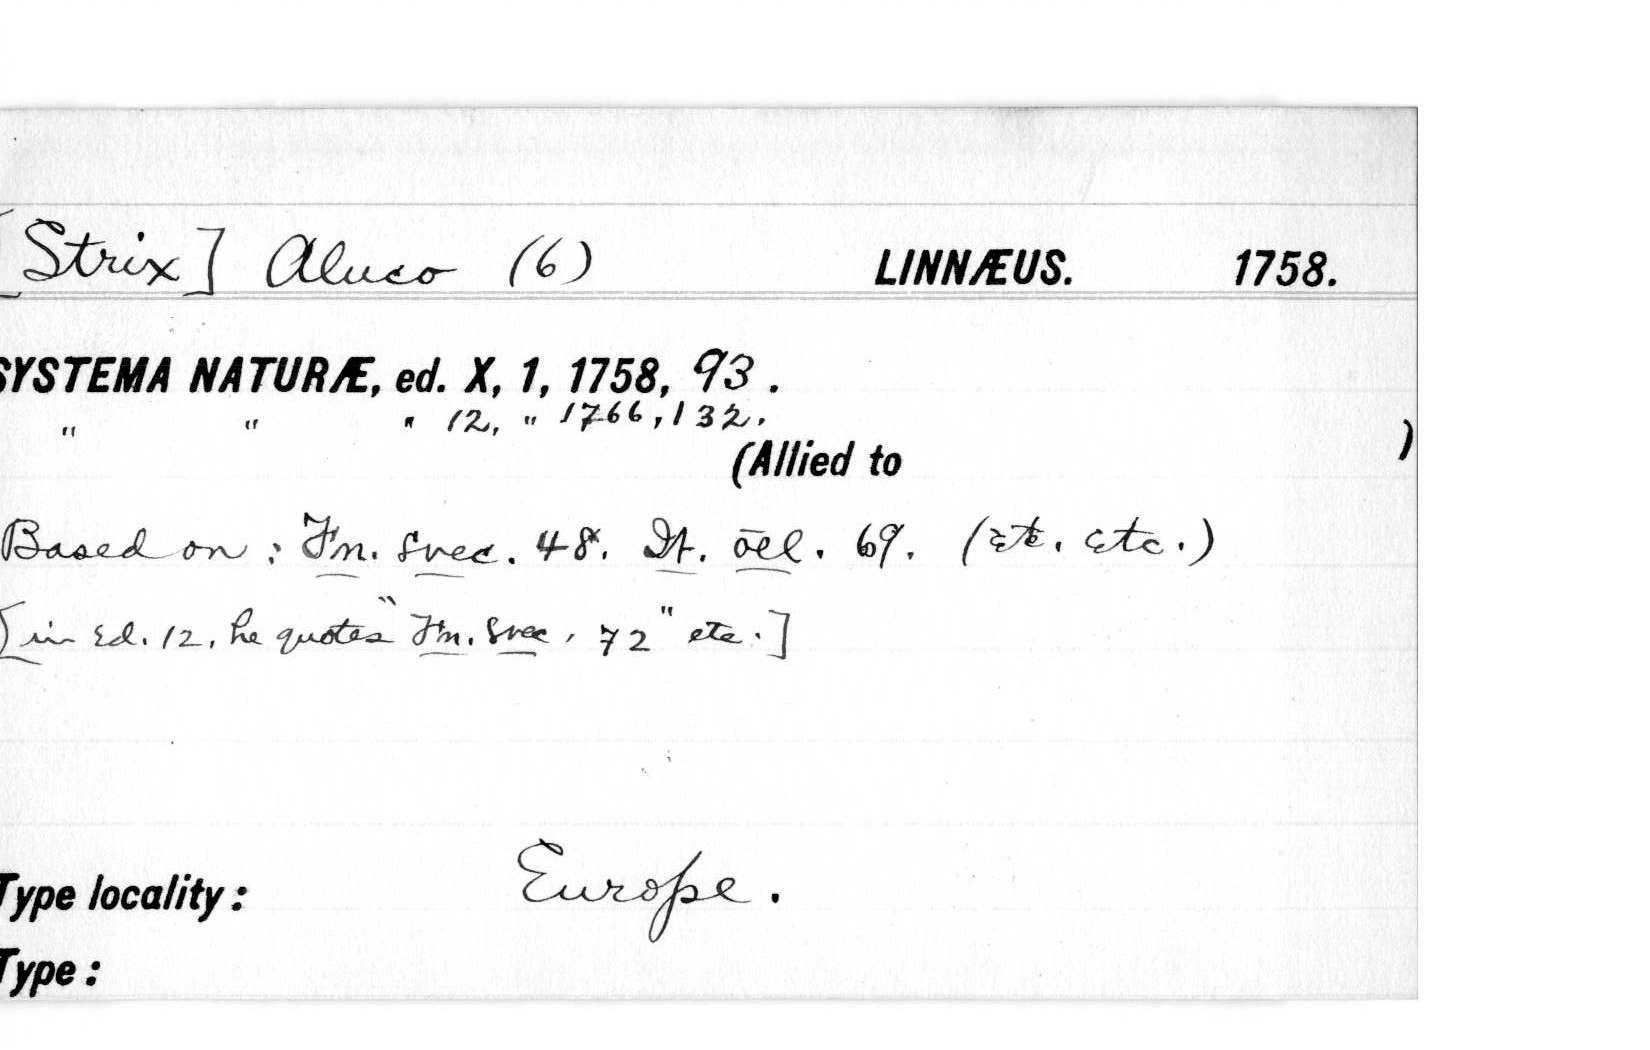 [Strix] Aluco (6) LINNÆUS. 1758.
SYSTEMA NATURÆ, ed. X, 1, 1758, 93.
" " " 12, " 1766, 132.
(Allied to )
Based on: Fn. Svec. 48. It. oel. 69. (etc. etc.)
[in Ed. 12, he quotes "Fn. Svec. 72" etc.]
Type locality: Europe.
Type: